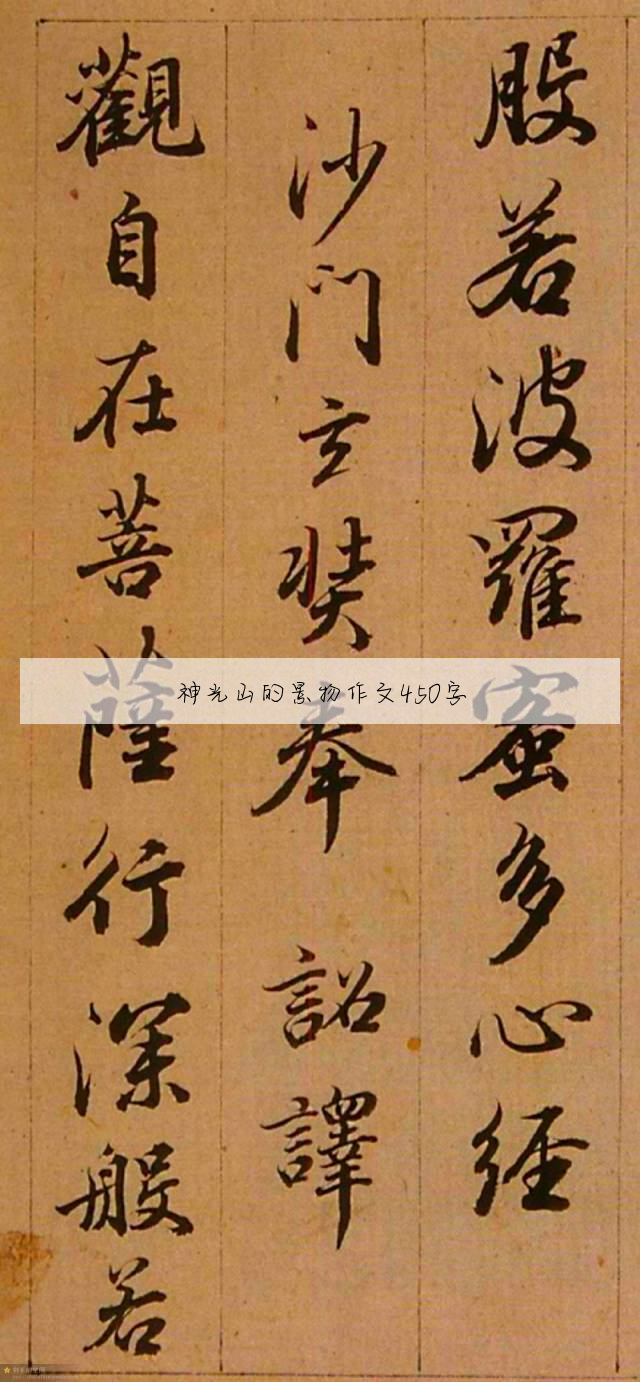 般若波羅蜜多心經
沙門玄奘奉詔譯
觀自在菩薩行深般若
神光山的景物作文450字